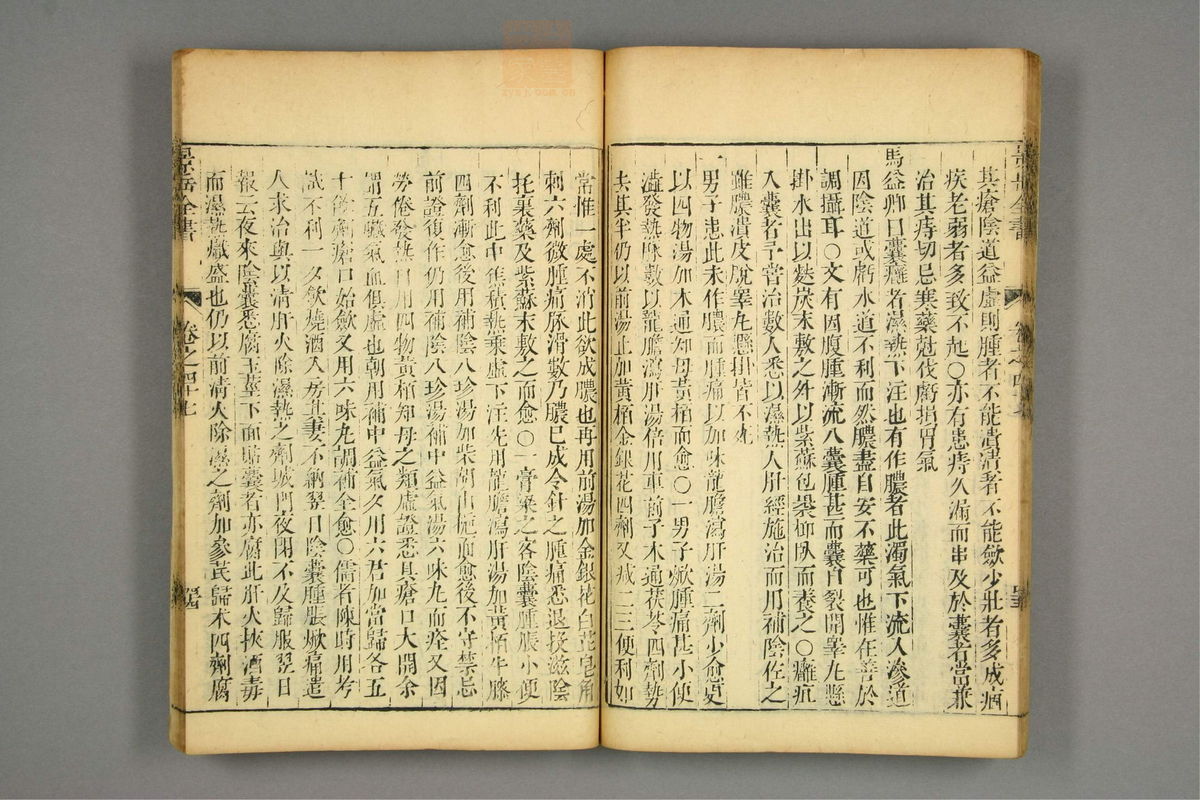 其瘡陰道益虛則腫者不能潰潰者不能斂少壯者多成痼
疾老弱者多致不起○亦有患痔久漏而串及於囊者當兼
治其痔切忌寒藥尅伐虧損胃氣
馬益卿曰囊癰者濕熱下注也有作膿者此濁氣下流入滲道
因陰道或虧水道不利而然膿盡自安不藥可也惟在善於
調攝耳○又有因腹腫漸流入囊腫甚而囊自裂開睪丸懸
掛水出以麩炭末敷之外以紫蘇包裹仰臥而養之○癰疽
入囊者予嘗治數人悉以濕熱入肝經施治而用補陰佐之
雖膿潰皮脫睪丸懸掛皆不死
一男子患此未作膿而腫痛以加味龍膽瀉肝湯二劑少愈更
以四物湯加木通知母黃栢而愈○一男子焮腫痛甚小便
澁發熱脉數以龍膽瀉肝湯倍用車前子木通茯苓四劑勢
去其半仍以前湯止加黃栢金銀花四劑又减二三便利如
常惟一處不消此欲成膿也再用前湯加金銀花白芷皂角
刺六劑微腫痛脉滑數乃膿已成令針之腫痛悉退投滋陰
托裏藥及紫蘇末敷之而愈○一膏粱之客陰囊腫脹小便
不利此中焦積熱乘虛下注先用龍膽瀉肝湯加黃栢牛膝
四劑漸愈後用補陰八珍湯加柴胡山梔而愈後不守禁忌
前證復作仍用補陰八珍湯補中益氣湯六味丸而痊又因
勞倦發熱自用四物黃栢知母之類虛證悉具瘡口大開余
謂五臟氣血俱虛也朝用補中益氣夕用六君加當歸各五
十餘劑瘡口始斂又用六味丸調補全愈○儒者陳時用考
試不利一夕飲燒酒入房其妻不納翌日陰囊腫脹焮痛遣
人求治與以清肝火除濕熱之劑城門夜閉不及歸服翌日
報云夜來陰囊悉腐玉莖下面貼囊者亦腐此肝火挾酒毒
而濕熱熾盛也仍以前清火除濕之劑加參芪歸术四劑腐
景岳全書
卷之四十七